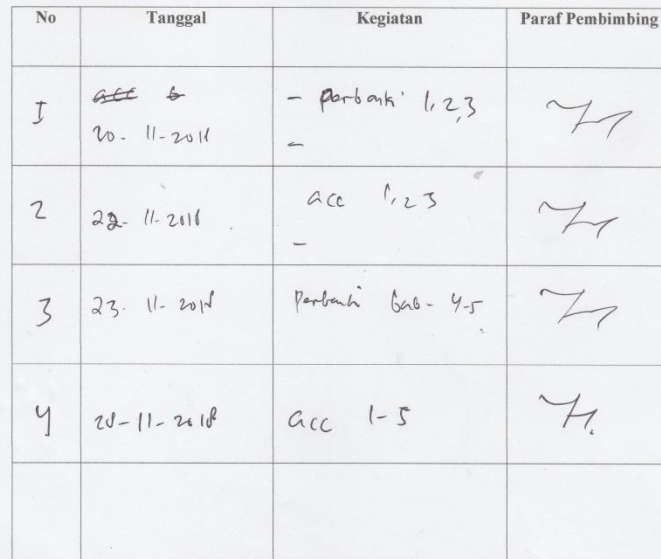 No Tanggal Kegiatan Paraf Pembimbing
I acc b - perbaiki 1,2,3
20-11-2018 -
2 22-11-2018 acc 1,2 3
-
3 23-11-2018 Perbaiki bab-4-5
4 28-11-2018 acc 1-5